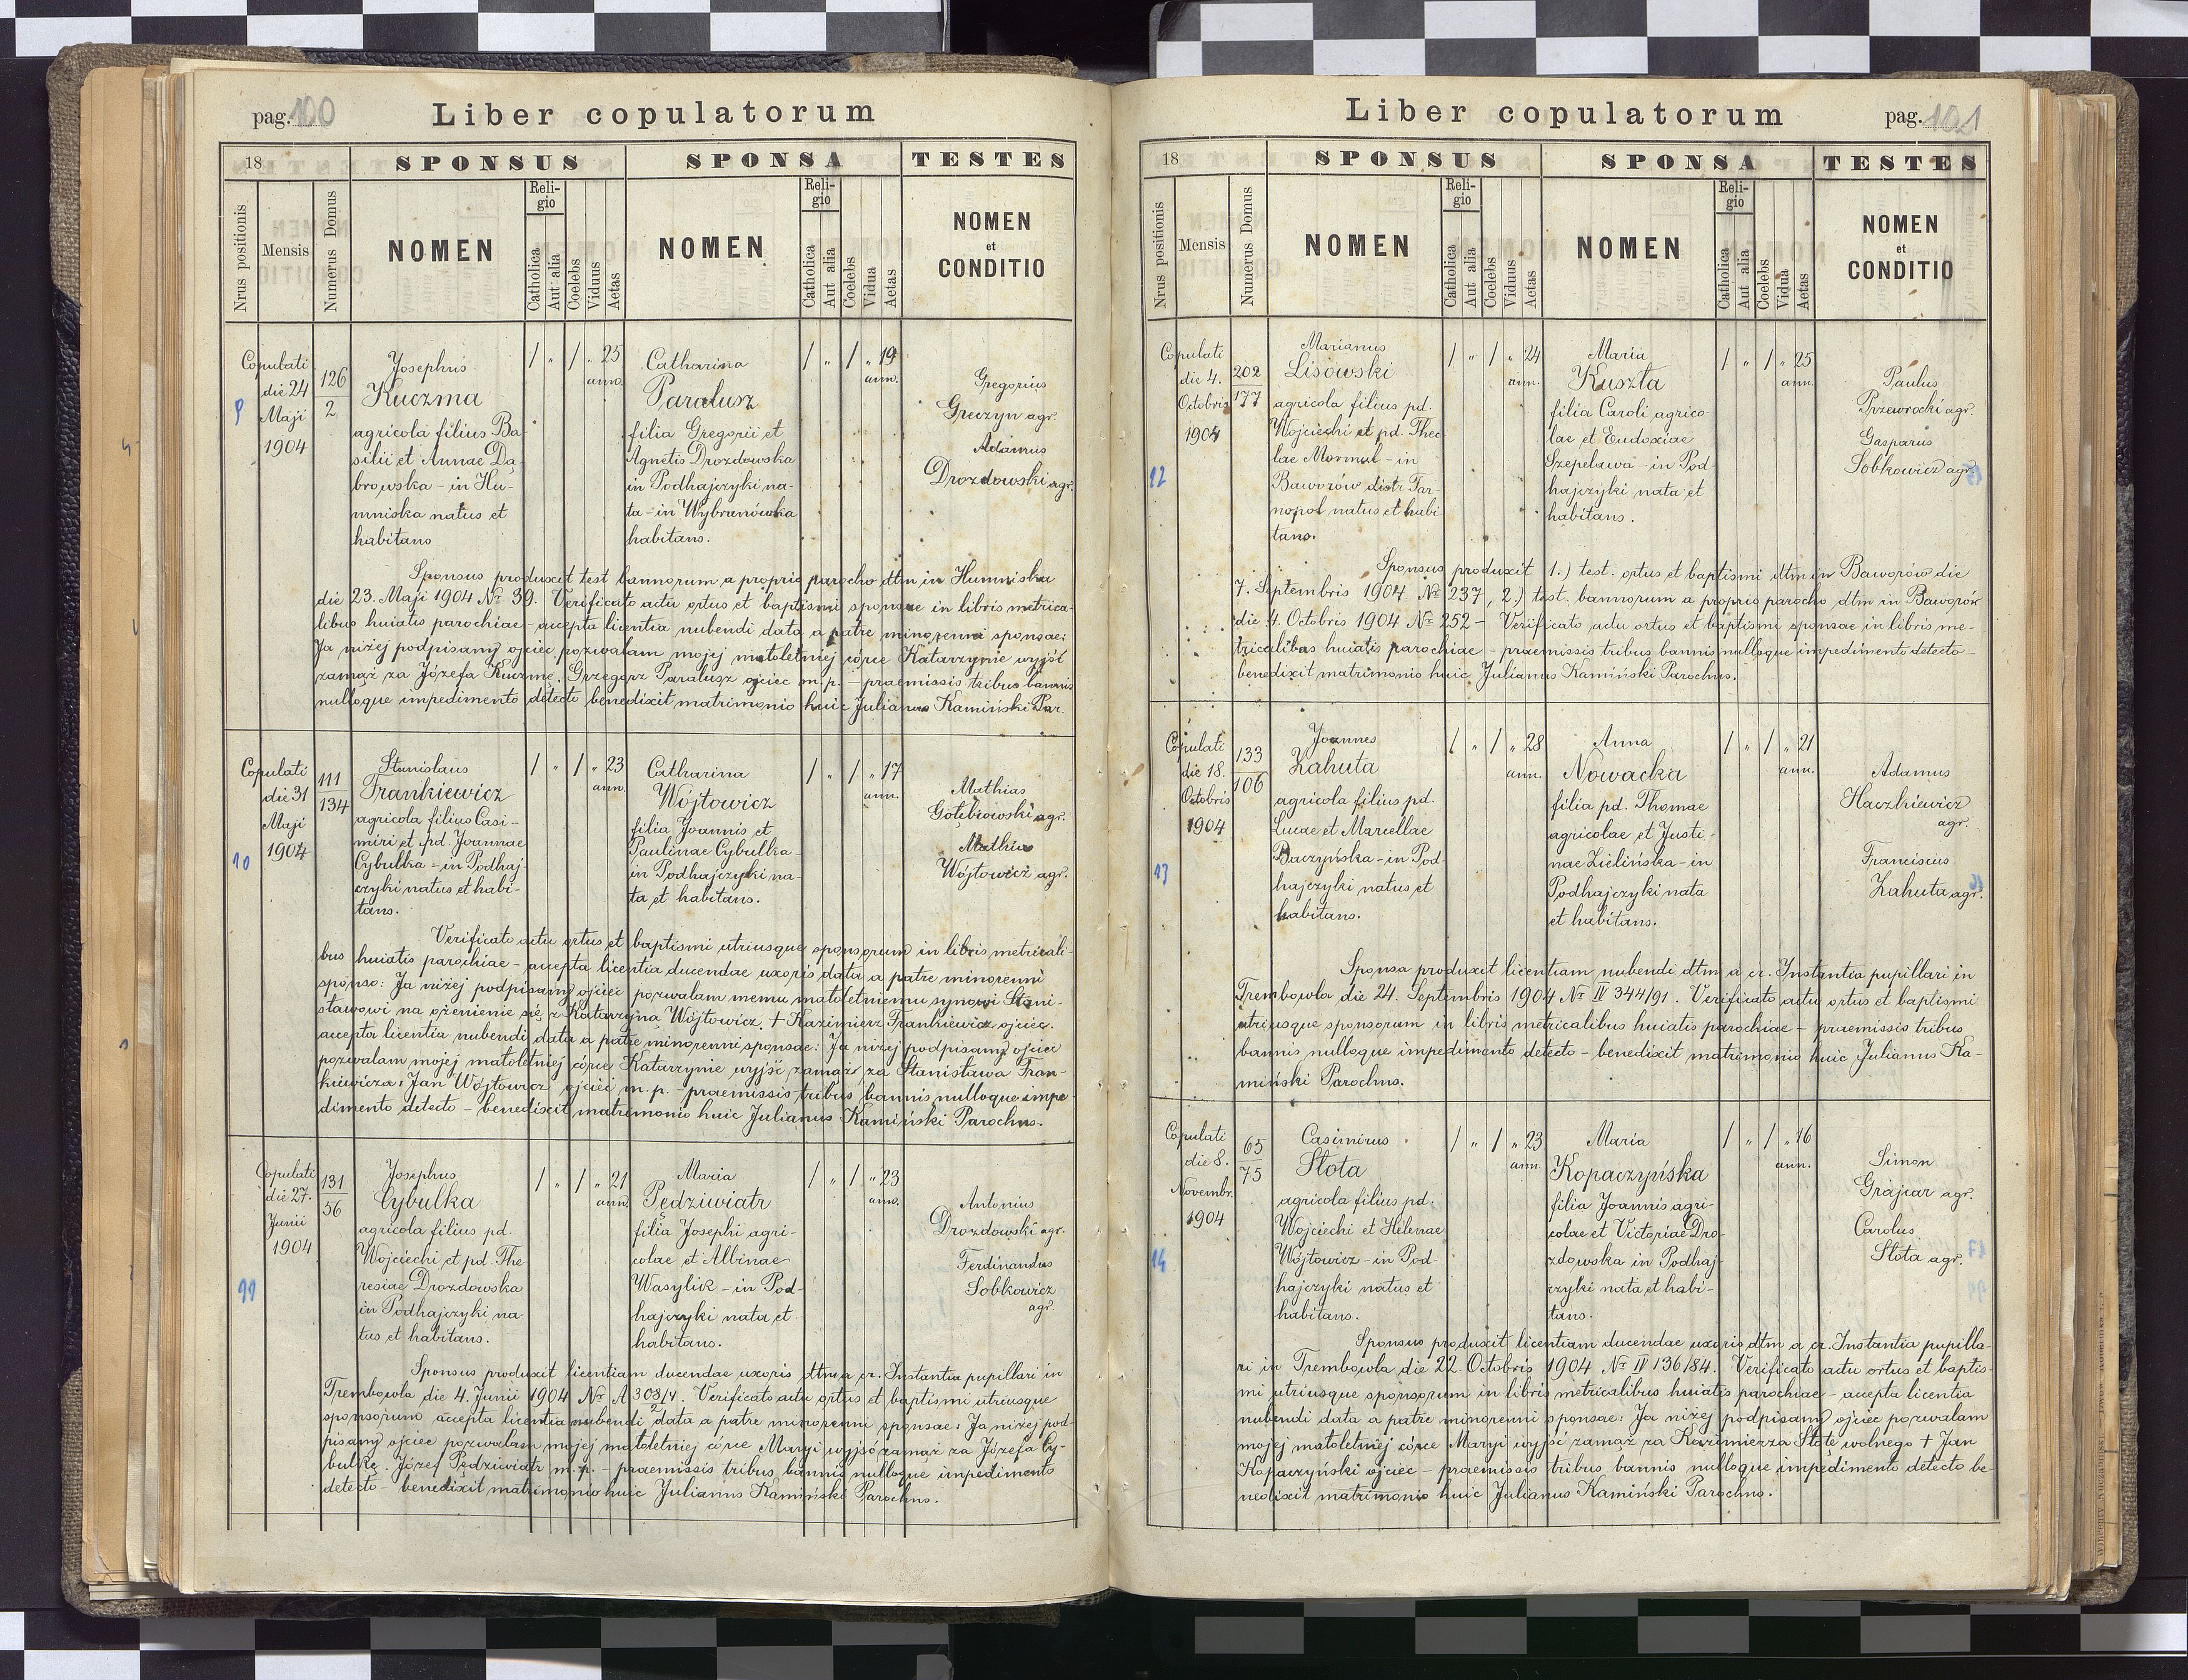 pag. 100 Liber copulatorum
18 SPONSUS SPONSA TESTES
Nrus positionis Mensis Numerus Domus NOMEN Religio Catholica Aut alia Coelebs Viduus Aetas NOMEN Religio Catholica Aut alia Coelebs Vidua Aetas NOMEN et CONDITIO
9
Copulati
die 24
Maji
1904
126
2
Josephus
Kuczma
agricola filius Ba-
silii et Annae Dą-
browska - in Hu-
mniska natus et
habitans
1 " 1 " 25
ann.
Catharina
Paralusz
filia Gregorii et
Agnetis Drozdowska
in Podhajczyki na-
ta - in Wybranówka
habitans.
1 " 1 " 19
ann.
Gregorius
Greczyn agr.
Adamus
Drozdowski agr.
Sponsus produxit test bannorum a proprio parocho dtm in Humniska
die 23. Maji 1904 Nr 39. Verificato actu ortus et baptismi sponsae in libris metrica-
libus huiatis parochiae - accepta licentia nubendi data a patre minorenni sponsae:
Ja niżej podpisany ojciec pozwalam mojej małoletniej córce Katarzynie wyjść
zamąż za Józefa Kuczmę. Grzegorz Paralusz ojciec m.p. - praemissis tribus bannis
nulloque impedimento detecto benedixit matrimonio huic Julianus Kamiński Par.
10
Copulati
die 31
Maji
1904
111
134
Stanislaus
Frankiewicz
agricola filius Casi-
miri et pd. Joannae
Cybulka - in Podhaj-
czyki natus et habi-
tans.
1 " 1 " 23
ann.
Catharina
Wójtowicz
filia Joannis et
Paulinae Cybulka -
in Podhajczyki na-
ta et habitans.
1 " 1 " 17
ann.
Mathias
Gołębiowski agr.
Mathias
Wójtowicz agr.
Verificato actu ortus et baptismi utriusque sponsorum in libris metricali-
bus huiatis parochiae - accepta licentia ducendae uxoris data a patre minorenni
sponso: Ja niżej podpisany ojciec pozwalam memu małoletniemu synowi Stani-
sławowi na ożenienie się z Katarzyną Wójtowicz. + Kazimierz Frankiewicz ojciec.
accepta licentia nubendi data a patre minorenni sponsae: Ja niżej podpisany ojciec
pozwalam mojej małoletniej córce Katarzynie wyjść zamąż za Stanisława Fran-
kiewicza: Jan Wójtowicz ojciec m.p. - praemissis tribus bannis nulloque impe-
dimento detecto - benedixit matrimonio huic Julianus Kamiński Parochus.
11
Copulati
die 27.
Junii
1904
131
56
Josephus
Cybulka
agricola filius pd.
Wojciechi et pd. The
resiae Drozdowska
in Podhajczyki na
tus et habitans.
1 " 1 " 21
ann.
Maria
Pędziwiatr
filia Josephi agri-
colae et Albinae
Wasylik - in Pod-
hajczyki nata et
habitans.
1 " 1 " 23
ann.
Antonius
Drozdowski agr.
Ferdinandus
Sobkowicz
agr.
Sponsus produxit licentiam ducendae uxoris dtm a cr. Instantia pupillari in
Trembowla die 4. Junii 1904 Nr A 303/4. Verificato actu ortus et baptismi utriusque
sponsorum accepta licentia nubendi data a patre minorenni sponsae: Ja niżej pod-
pisany ojciec pozwalam mojej małoletniej córce Maryi wyjść zamąż za Józefa Cy-
bulkę. Józef Pędziwiatr m.p. - praemissis tribus bannis nulloque impedimento
detecto - benedixit matrimonio huic Julianus Kamiński Parochus.
Liber copulatorum pag. 101
18 SPONSUS SPONSA TESTES
Nrus positionis Mensis Numerus Domus NOMEN Religio Catholica Aut alia Coelebs Viduus Aetas NOMEN Religio Catholica Aut alia Coelebs Vidua Aetas NOMEN et CONDITIO
12
Copulati
die 4.
Octobris
1904
202
177
Marianus
Lisowski
agricola filius pd.
Wojciechi et pd. Thec
lae Mormul - in
Baworów distr Tar-
nopol natus et habi
tans.
1 " 1 " 24
ann.
Maria
Kuszta
filia Caroli agrico-
lae et Eudoxiae
Szepelawa - in Pod-
hajczyki nata et
habitans.
1 " 1 " 25
ann.
Paulus
Przeworocki agr.
Gasparus
Sobkowicz agr.
Sponsus produxit 1.) test. ortus et baptismi dtm in Baworów die
7. Septembris 1904 Nr 237, 2.) test. bannorum a proprio parocho dtm in Baworów
die 4. Octobris 1904 Nr 252 - Verificato actu ortus et baptismi sponsae in libris me-
tricalibus huiatis parochiae - praemissis tribus bannis nulloque impedimento detecto -
benedixit matrimonio huic Julianus Kamiński Parochus.
13
Copulati
die 18.
Octobris
1904
133
106
Joannes
Zahuta
agricola filius pd.
Lucae et Marcellae
Baczyńska - in Pod-
hajczyki natus et
habitans.
1 " 1 " 28
ann.
Anna
Nowacka
filia pd. Thomae
agricolae et Justi-
nae Zielińska - in
Podhajczyki nata
et habitans.
1 " 1 " 21
ann.
Adamus
Haczkiewicz
agr.
Franciscus
Zahuta agr.
Sponsa produxit licentiam nubendi dtm a cr. Instantia pupillari in
Trembowla die 24. Septembris 1904 Nr IV 344/91. Verificato actu ortus et baptismi
utriusque sponsorum in libris metricalibus huiatis parochiae - praemissis tribus
bannis nulloque impedimento detecto - benedixit matrimonio huic Julianus Ka-
miński Parochus.
14
Copulati
die 8.
Novembr.
1904
65
75
Casimirus
Słota
agricola filius pd.
Wojciechi et Helenae
Wójtowicz - in Pod-
hajczyki natus et
habitans.
1 " 1 " 23
ann.
Maria
Kopaczyńska
filia Joannis agri-
colae et Victoriae Dro-
zdowska in Podhaj-
czyki nata et habi-
tans.
1 " 1 " 16
ann.
Simon
Grajcar agr.
Carolus
Słota agr.
Sponsus produxit licentiam ducendae uxoris dtm a cr. Instantia pupilla-
ri in Trembowla die 22. Octobris 1904 Nr IV 136/84. Verificato actu ortus et baptis-
mi utriusque sponsorum in libris metricalibus huiatis parochiae - accepta licentia
nubendi data a patre minorenni sponsae: Ja niżej podpisany ojciec pozwalam
mojej małoletniej córce Maryi wyjść zamąż za Kazimierza Słotę wolnego + Jan
Kopaczyński ojciec - praemissis tribus bannis nulloque impedimento detecto be-
nedixit matrimonio huic Julianus Kamiński Parochus.